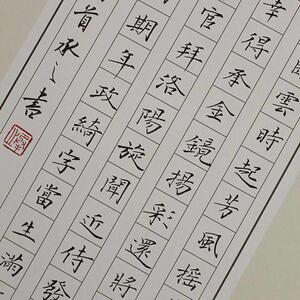 雲時起芳風搖
幸得承金鏡揚彩還將
官拜洛陽旋聞近侍發
期年政綺字當生滿
首永之書